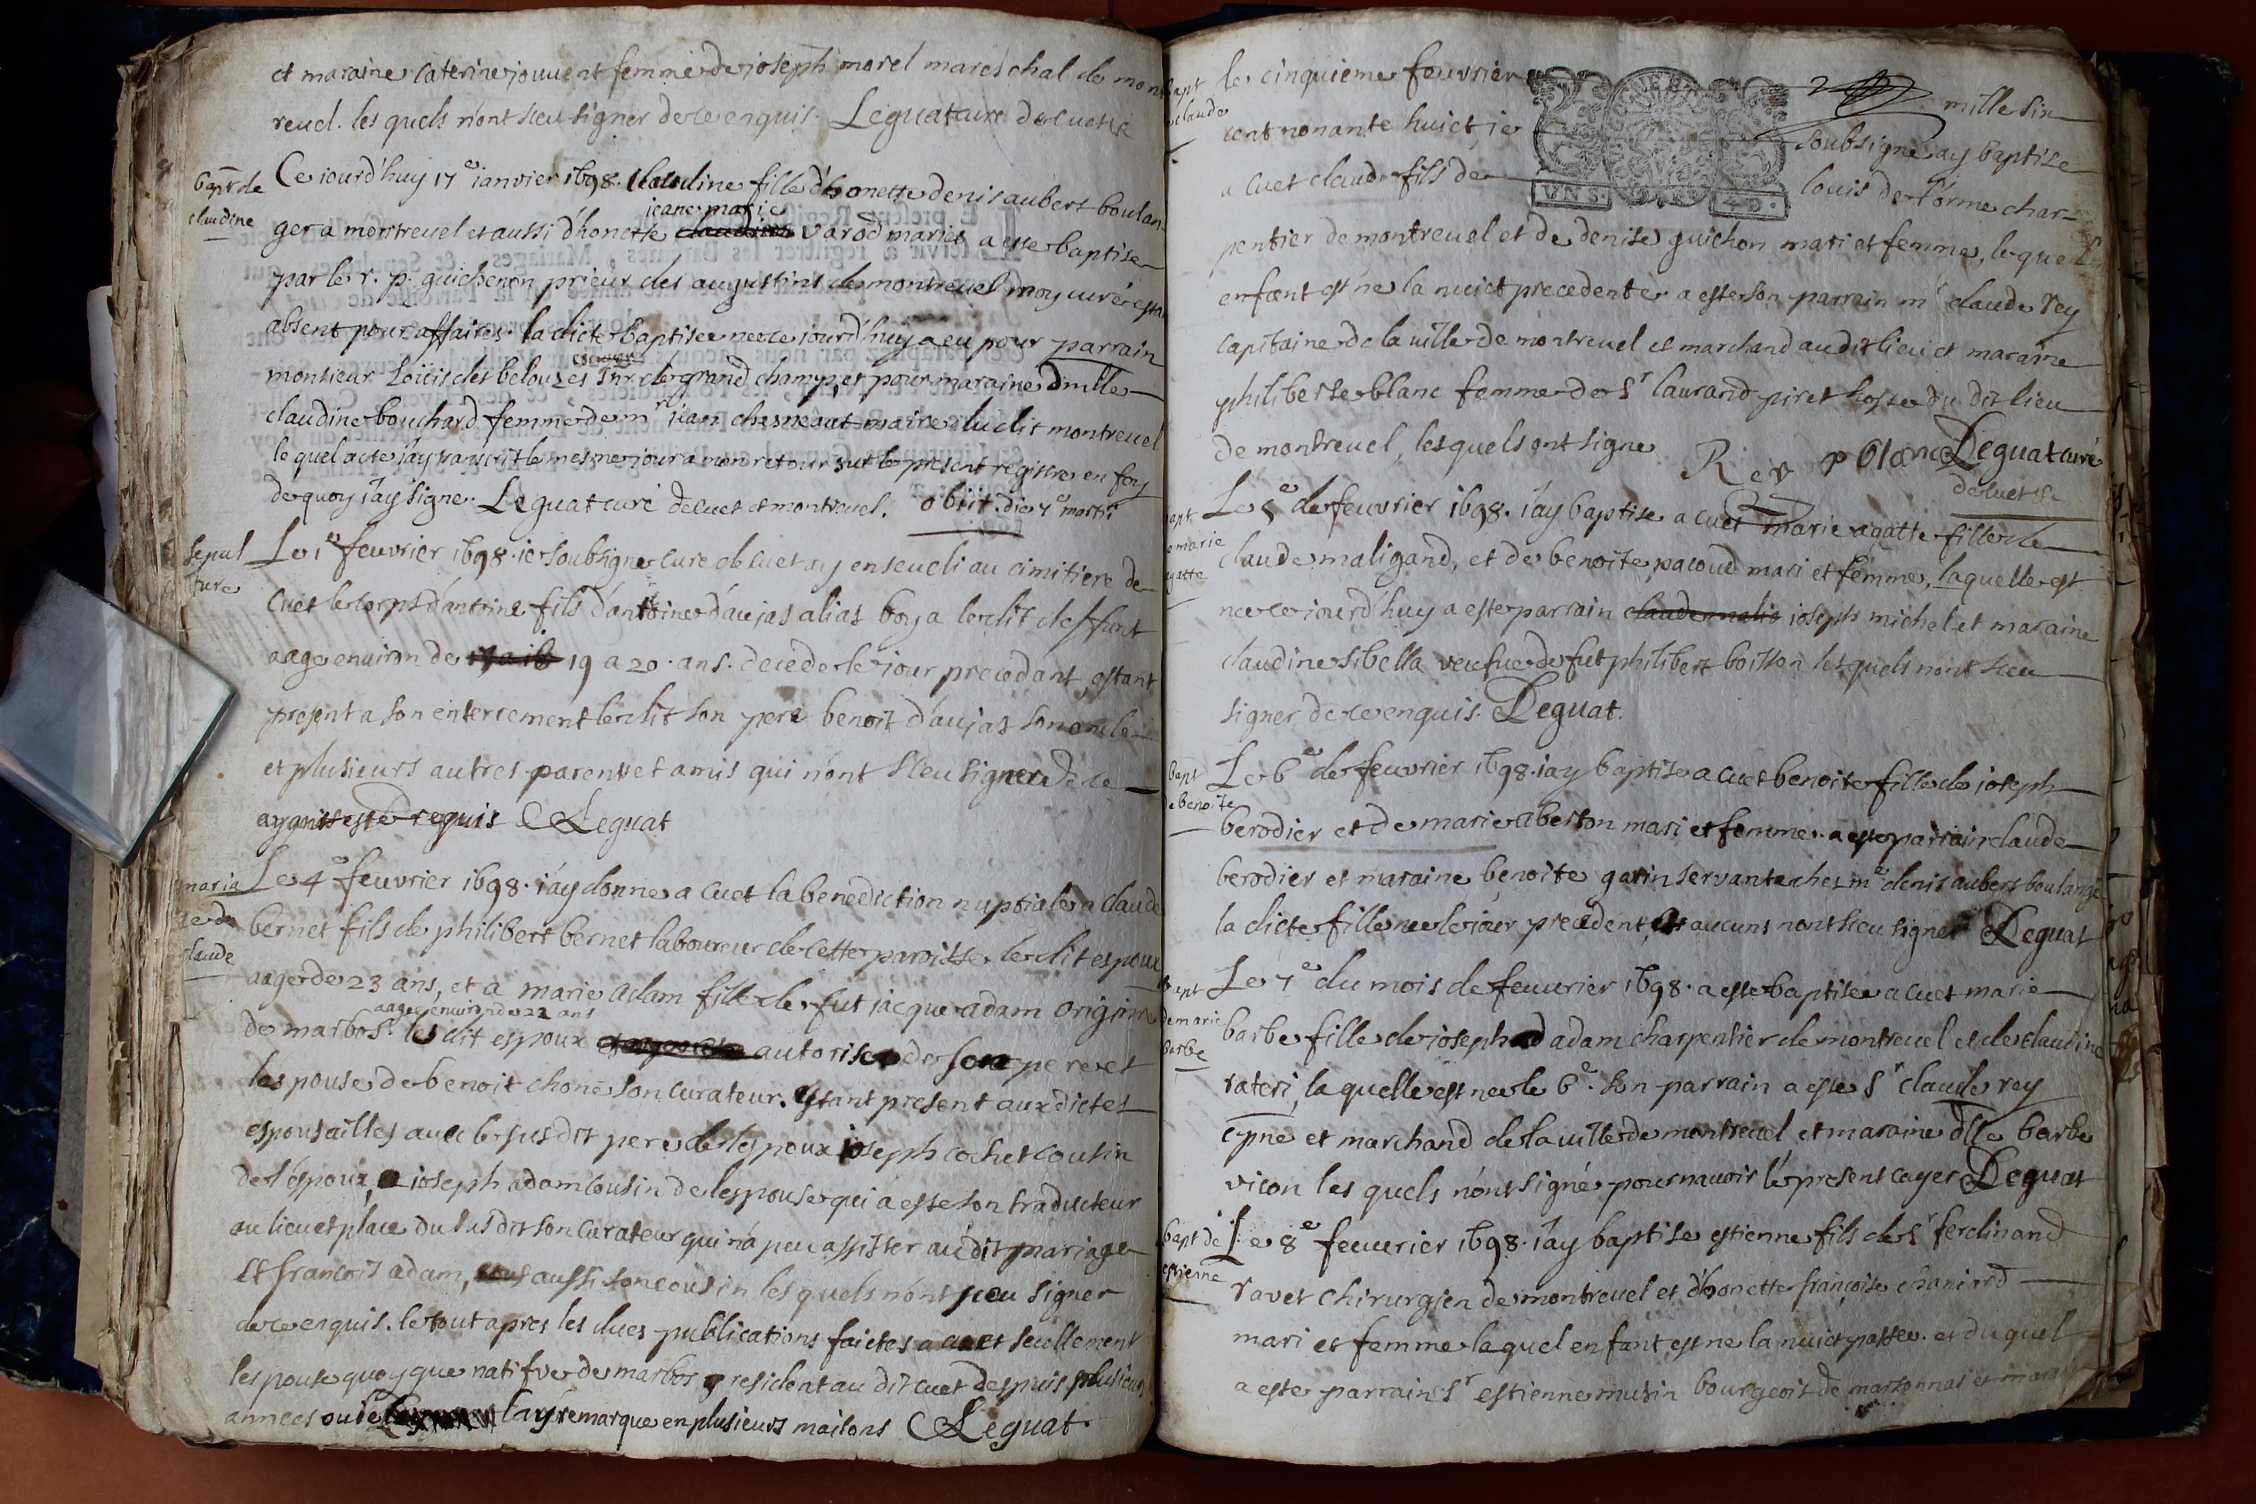 et maraine caterine jouuent femme de joseph morel mareschal de mont
reuel. les quels n'ont sceu signer de ce enquis. Leguat curé de cuet
bapt de claudine
Ce jourd'huy 17e ianvier 1698. claudine fille d'honette denis aubert boulan
ger a montreuel et aussi d'honeste jeane marie varod mariés a este baptisee
par le r. p. guichenon prieur des augustins de montreuel moy curé estant
absent pour affaires. la dicte baptisee nee ce iourd'huy a eu pour parrain
monsieur Loüis des belouzes escuyer Sgr. de grand champ, et pour maraine dmlle
claudine bouchard femme de mr jean chesneaut maire du dit montreuel
le quel acte j'ay transcrit le mesme jour a mon retour sur le present registre en foy
de quoy j'ay signe. Leguat curé de cuet et montreuel. obiit. die 7e martii
sepul
ture
Le 1er feuvrier 1698. ie soubsigne curé de cuet ay enseueli au cimitiere de
cuet le corps d'antoine fils d'antoine d'aujas alias boya le dit deffunt
aage enuiron de 19 a 20. ans. decede le jour precedant, estant
present a son enterrement le dit son pere benoit d'aujas son oncle
et plusieurs autres parents et amis qui n'ont sceu signer de ce
ayants esté requis Leguat
maria
ge de
claude
Le 4e feuvrier 1698. i'ay donne a cuet la benediction nuptiale a claude
bernet fils de philibert bernet laboureur de cette paroisse le dit espoux
aage de 23 ans, et a marie adam fille de fut jacque adam origine
de marbos. aagee enuiron de 22 ans le dit espoux autorisé de son pere et
lespouse de benoit chone son curateur. Estant present aux dictes
espousailles auec le susdit pere de lespoux joseph cochet cousin
de l'espoux, joseph adam cousin de lespouse qui a este son traducteur
au lieu et place du susdit son curateur qui n'a peu assister au dit mariage
Et francois adam, aussi son cousin les quels n'ont sceu signer
de ce enquis. le tout apres les dues publications faictes a cuet seullement
lespouse quoy que natifve de marbos resident au dit cuet despuis plusieurs
annees ou je l'ay remarque en plusieurs maisons Leguat
bapt
de claude
le cinquieme feuvrier mille six
cent nonante huict je soubsigne ay baptise
a cuet claude fils de louis de l'orme char
UN S. 4 D.
pentier de montreuel et de denise guichon mari et femme, le quel
enfant est ne la nuict precedente a este son parrain mr claude rey
capitaine de la ville de montreuel et marchand audit lieu et maraine
philiberte blanc femme de Sr laurand piret hoste du dit lieu
de montreuel, lesquels ont signe Rey p blanc Leguat curé
de cuet
bapt
de marie
agatte
Le 5e de feuvrier 1698. i'ay baptise a cuet marie agatte fille de
claude maligand, et de benoite pacoud mari et femme, laquelle est
nee ce iourd'huy a este parrain joseph michel et maraine
claudine sibella veufue de fut philibert boisson lesquels n'ont sceu
signer de ce enquis. Leguat.
bapt
de benoite
Le 6e de feuvrier 1698. i'ay baptise a cuet benoite fille de joseph
berodier et de marie aberton mari et femme. a este parrain claude
berodier et maraine benoite gatin servante chez me denis aubert boulangé
la dicte fille nee le iour precedent, et aucuns n'ont sceu signer Leguat
bapt
de marie
barbe
Le 7e du mois de feuvrier 1698. a este baptisee a cuet marie
barbe fille de joseph adam charpentier de montreuel et de claudine
rateri, la quelle est nee le 6e. son parrain a este Sr claude rey
cpne et marchand de la ville de montreuel et maraine dlle barbe
vicon les quels n'ont signé pour n'auoir le present cayer Leguat
bapt de
estienne
Le 8e feuurier 1698. i'ay baptise estienne fils de Sr ferdinand
ravet chirurgien de montreuel et d'honette françoise chaniard
mari et femme laquel enfant est né la nuict passee. et duquel
a este parrain Sr estienne musin bourgeois de marsonnas et maraine